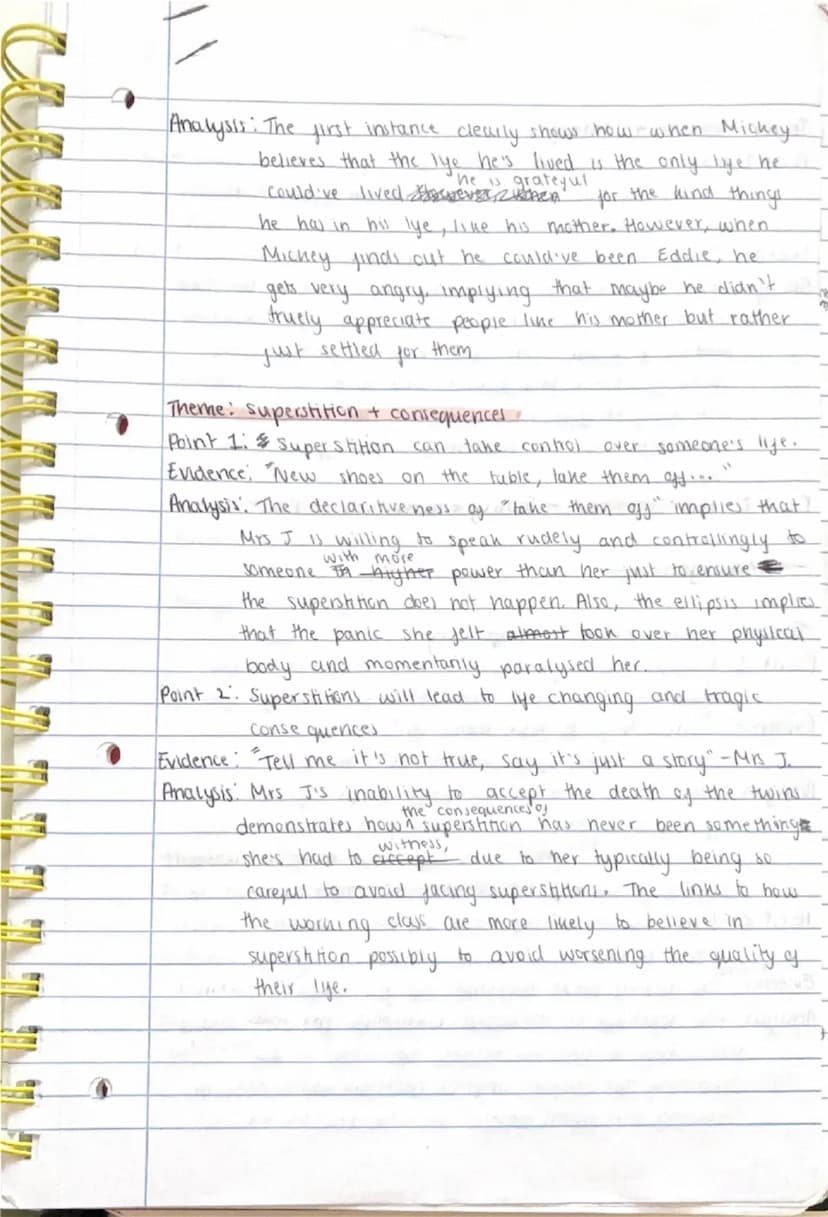 Analysis: The first instance clearly shows how when Mickey
believes that the life he's lived is the only life he
could've lived he is grateful for the kind things
he has in his life, like his mother. However, when
Mickey finds out he could've been Eddie, he
gets very angry, implying that maybe he didn't
truely appreciate people like his mother but rather
just settled for them
Theme: superstition + consequences
Point 1: Superstition can take control over someone's life.
Evidence: "New shoes on the table, take them off..."
Analysis: The declaritiveness of "take them off" implies that
Mrs J is willing to speak rudely and controllingly to
someone with more power than her just to ensure
the superstition does not happen. Also, the ellipsis implies
that the panic she felt almost took over her physical
body and momentarily paralysed her.
Point 2: Superstitions will lead to life changing and tragic
consequences
Evidence: "Tell me it's not true, say it's just a story" - Mrs J.
Analysis: Mrs J's inability to accept the death of the twins
demonstrates how the consequences of superstition has never been something
she's had to witness, due to her typically being so
careful to avoid facing superstitions. The links to how
the working class are more likely to believe in
superstition possibly to avoid worsening the quality of
their life.